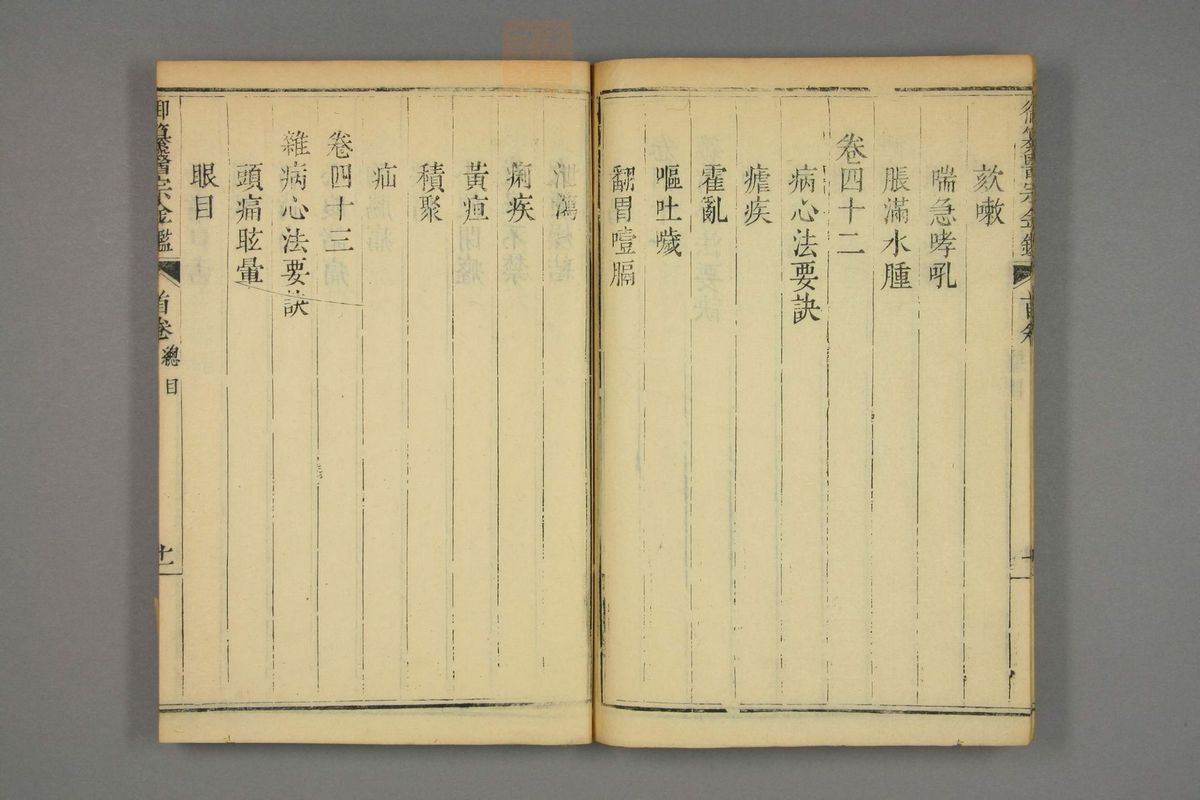 御纂醫宗金鑑 首卷
欬嗽
喘急哮吼
脹滿水腫
卷四十二
病心法要訣
瘧疾
霍亂
嘔吐噦
翻胃噎膈
泄瀉
痢疾
黃疸
積聚
疝
卷四十三
雜病心法要訣
頭痛眩暈
眼目
御纂醫宗金鑑 首卷 總目 十一